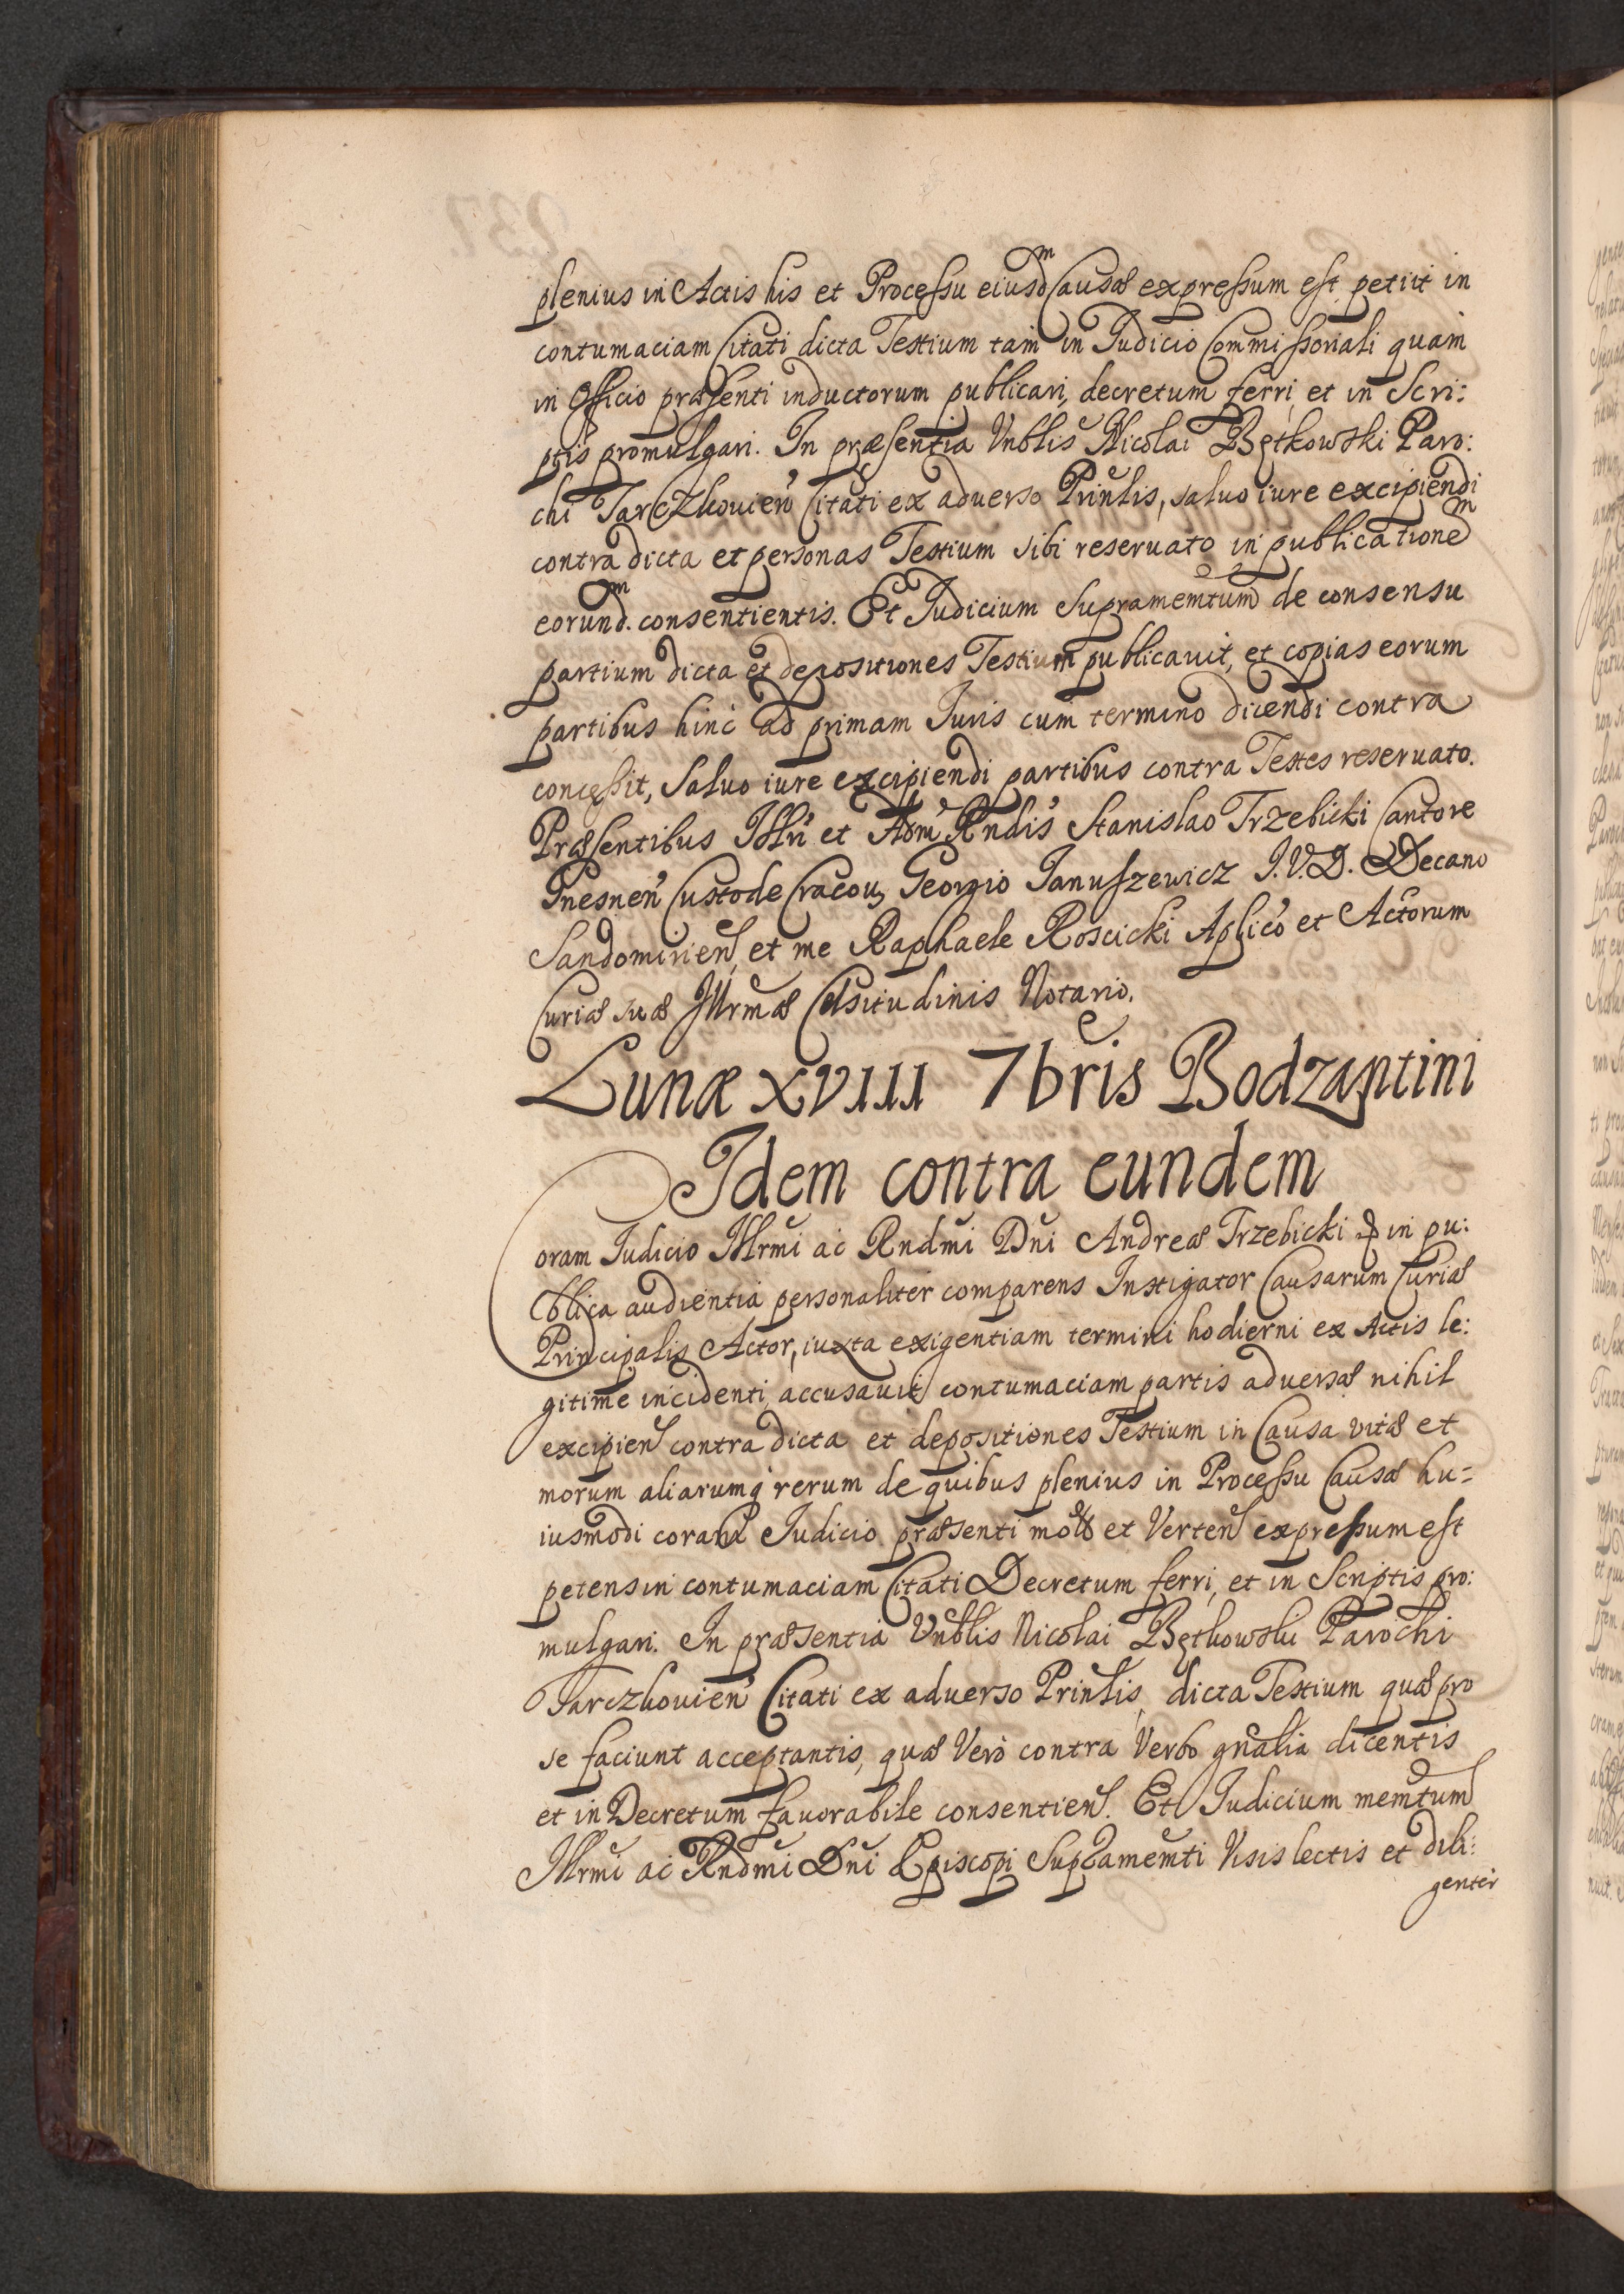 plenius in Actis his et Processu eiusdm Causæ expressum est petiit in
contumaciam Citati dicta Testium tam in Judicio Commissoriali quam
in Officio præsenti inductorum publicari, decretum ferri, et in Scri:
ptis promulgari. In præsentia Vnblis Nicolai Bętkowski Paro:
chi Tarczkovien Citati ex adverso Prinlis, salvo iure excipiendi
contra dicta et personas Testium sibi reservato in publicationem
eorundm. consentientis. Et Judicium Supramemtum de consensu
partium dicta et depositiones Testium publicavit, et copias eorum
partibus hinc ad primam Juris cum termino dicendi contra
concessit, Salvo iure excipiendi partibus contra Testes reservato.
Præsentibus Illri et Adm Rndis Stanislao Trzebicki Cantore
Gnesnen Custode Cracov, Georgio Januszewicz J.V.D. Decano
Sandomirien, et me Raphaele Roscicki Aplico et Actorum
Curiæ suæ Illrmæ Celsitudinis Notario.
Lunæ XVIII 7bris Bodzantini
Idem contra eundem
Coram Judicio Illrmi ac Rndmi Dni Andreæ Trzebicki & in pu:
blica audientia personaliter comparens Instigator Causarum Curiæ
Principalis Actor, iuxta exigentiam termini hodierni ex Actis le:
gitime incidenti, accusavit contumaciam partis adversæ nihil
excipien contra dicta et depositiones Testium in Causa vitæ et
morum aliarumq rerum de quibus plenius in Processu Causæ hu=
iusmodi coram Judicio præsenti et Verten expressum est
petens in contumaciam Citati Decretum ferri, et in Scriptis pro:
mulgari. In præsentia Vnblis Nicolai Bętkowski Parochi
Tarczkovien Citati ex adverso Prinlis, dicta Testium quæ pro
se faciunt acceptantis, quæ Vero contra Verbo gnalia dicentis
et in Decretum favorabile consentien. Et Judicium memtum
Illrmi ac Rndmi Dni Episcopi Supramemti Visis lectis et dili:
genter